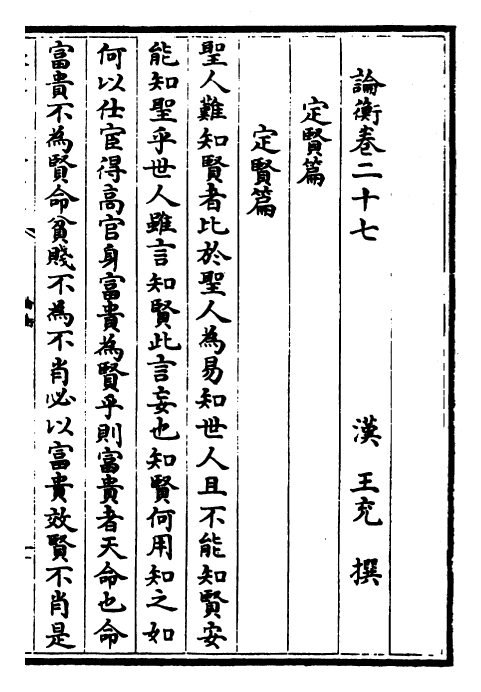 論衡卷二十七　漢　王充　撰
定賢篇
定賢篇
聖人難知賢者比於聖人為易知世人且不能知賢安
能知聖乎世人雖言知賢此言妄也知賢何用知之如
何以仕宦得高官身富貴為賢乎則富貴者天命也命
富貴不為賢命貧賤不為不肖必以富貴效賢不肖是